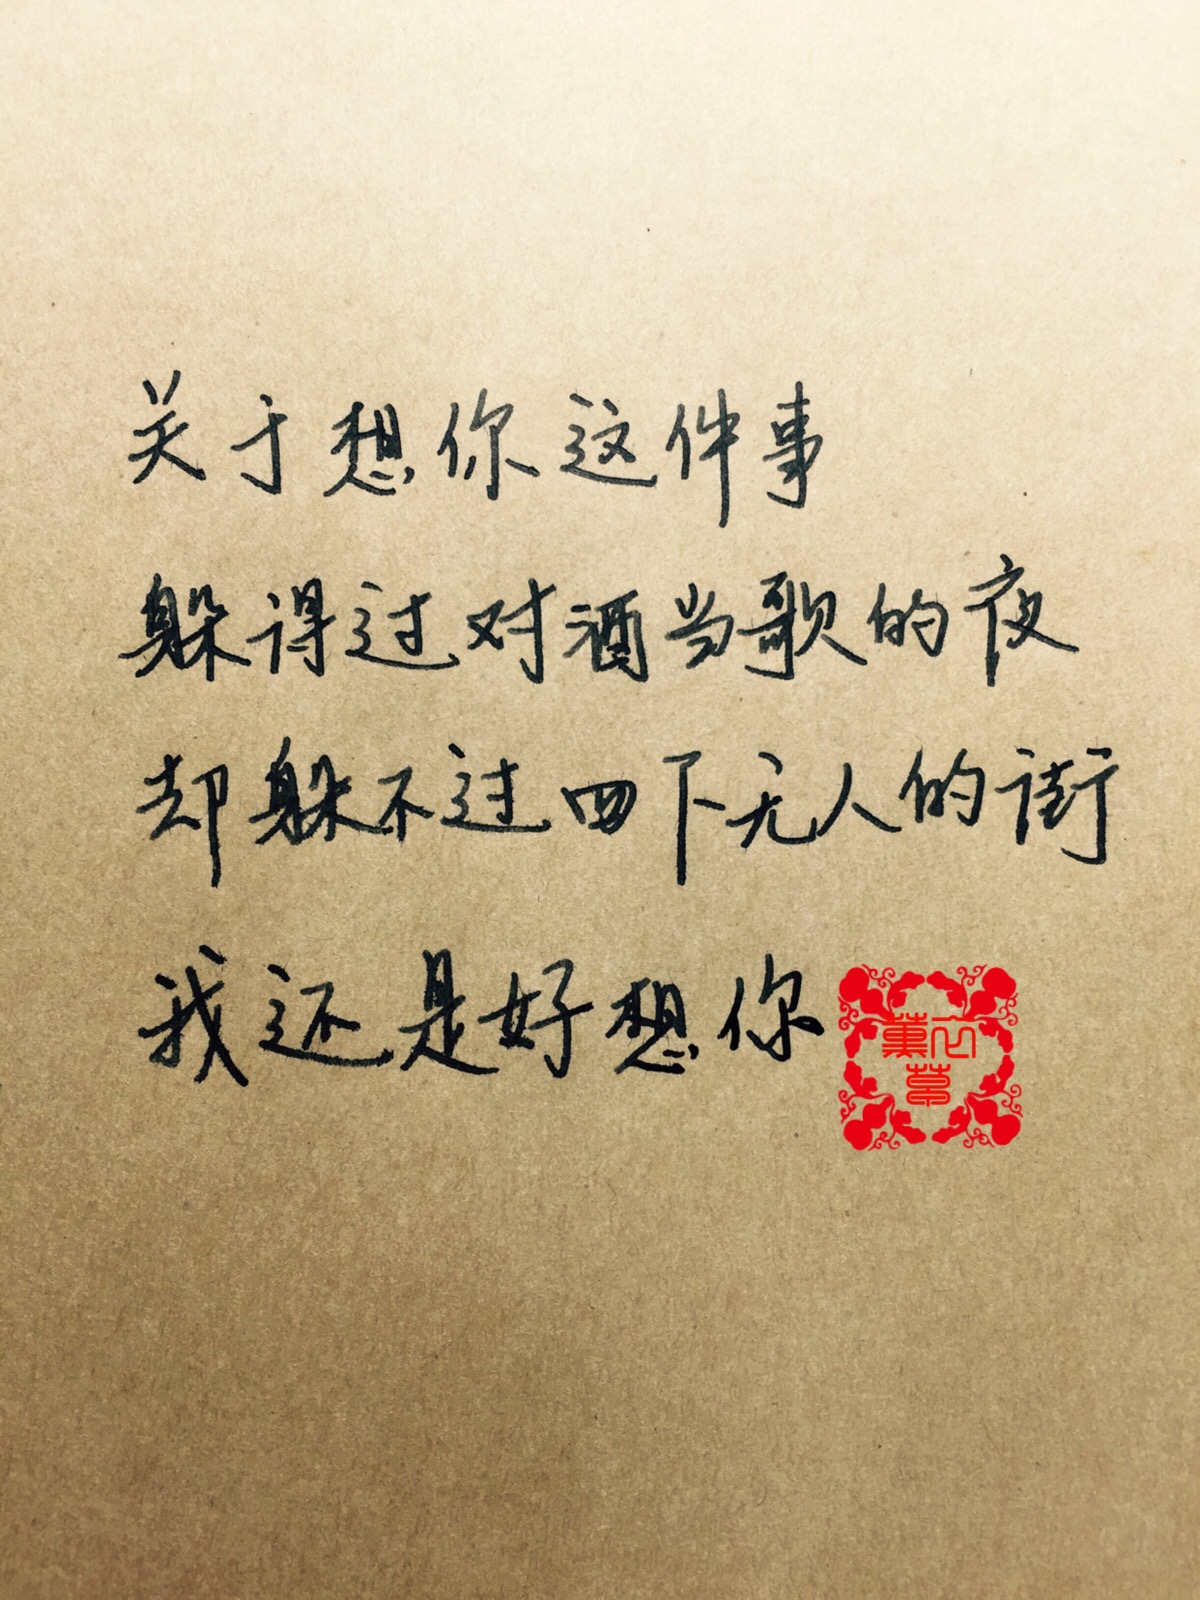 关于想你这件事
躲得过对酒当歌的夜
却躲不过四下无人的街
我还是好想你